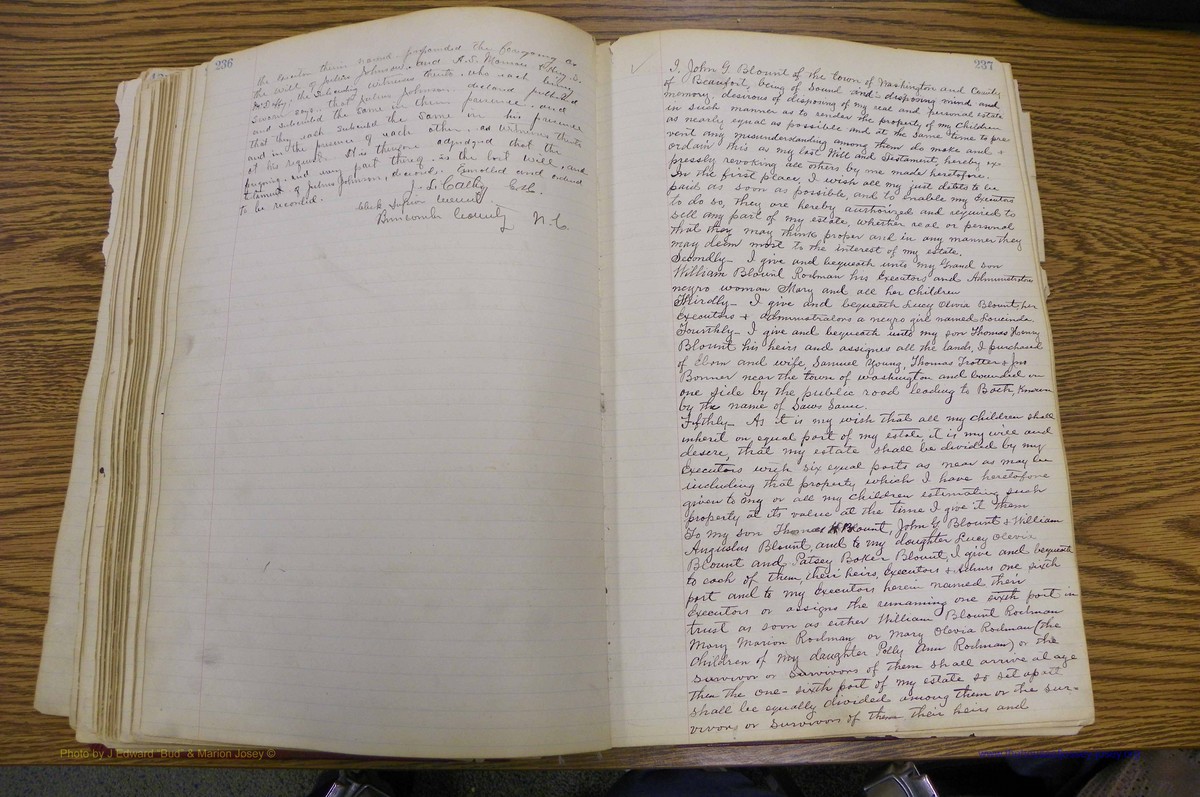 236
the executor therein named propounded the foregoing as
the will of Julius Johnson and
the subscribing witnesses thereto, who each being
sworn says, that Julius Johnson, declared published
and subscribed the same in their presence, and
that they each subscribed the same in his presence
and in the presence of each other, as witnesses thereto
at his request. It is therefore adjudged that the
and every part thereof is the last will and
testament of Julius Johnson, deceased. Enrolled and ordered
to be recorded.
J. L. Cathey C.S.C.
Clerk Superior Court
Buncombe County N.C.
237
I, John G. Blount of the town of Washington and County
of Beaufort, being of sound and disposing mind and
memory, desirous of disposing of my real and personal estate
in such manner as to render the property of my Children
as nearly equal as possible and at the same time to pre
vent any misunderstanding among them do make and
ordain this as my last Will and Testament, hereby ex-
pressly revoking all others by me made heretofore.
In the first place, I wish all my just debts to be
paid as soon as possible, and to enable my Executors
to do so, they are hereby authorized and required to
sell any part of my estate, whether real or personal
that they may think proper and in any manner they
may deem most to the interest of my estate.
Secondly - I give and bequeath unto my Grand son
William Blount Rodman his Executors and Administrators
negro woman Mary and all her children
Thirdly - I give and bequeath Lucy Olivia Blount, her
Executors + administrators a negro girl named Loucinda
Fourthly - I give and bequeath unto my son Thomas Henry
Blount his heirs and assignes all the lands, I purchased
of Eborn and wife, Samuel Young, Thomas Trotter & Jno
Bonner near the town of washington and bounded on
one side by the public road leading to Bath, Known
by the name of
Fifthly - As it is my wish that all my children shall
inherit on equal part of my estate it is my will and
desire, that my estate shall be divided by my
Executors with six equal parts as near as may be
including that property, which I have heretofore
given to my or all my children estimating such
property at its value at the time I give it them
To my son Thomas H Blount, John G Blount & William
Augustus Blount, and to my daughter Lucy Olevia
Blount and Patsey Baker Blount, I give and bequeath
to each of them their heirs, Executors & Admrs one sixth
part and to my Executors herein named their
Executors or assigns the remaining one sixth part in
trust as soon as either William Blount Rodman
Mary Marion Rodman or Mary Olevia Rodman (the
Children of my daughter Polly Ann Rodman) or the
survivor or Survivors of them shall arrive at age
then the one-sixth part of my estate so set apart
shall be equally divided among them or the sur-
vivors or Survivors of them their heirs and
Photo by J Edward "Bud" & Marion Josey ©